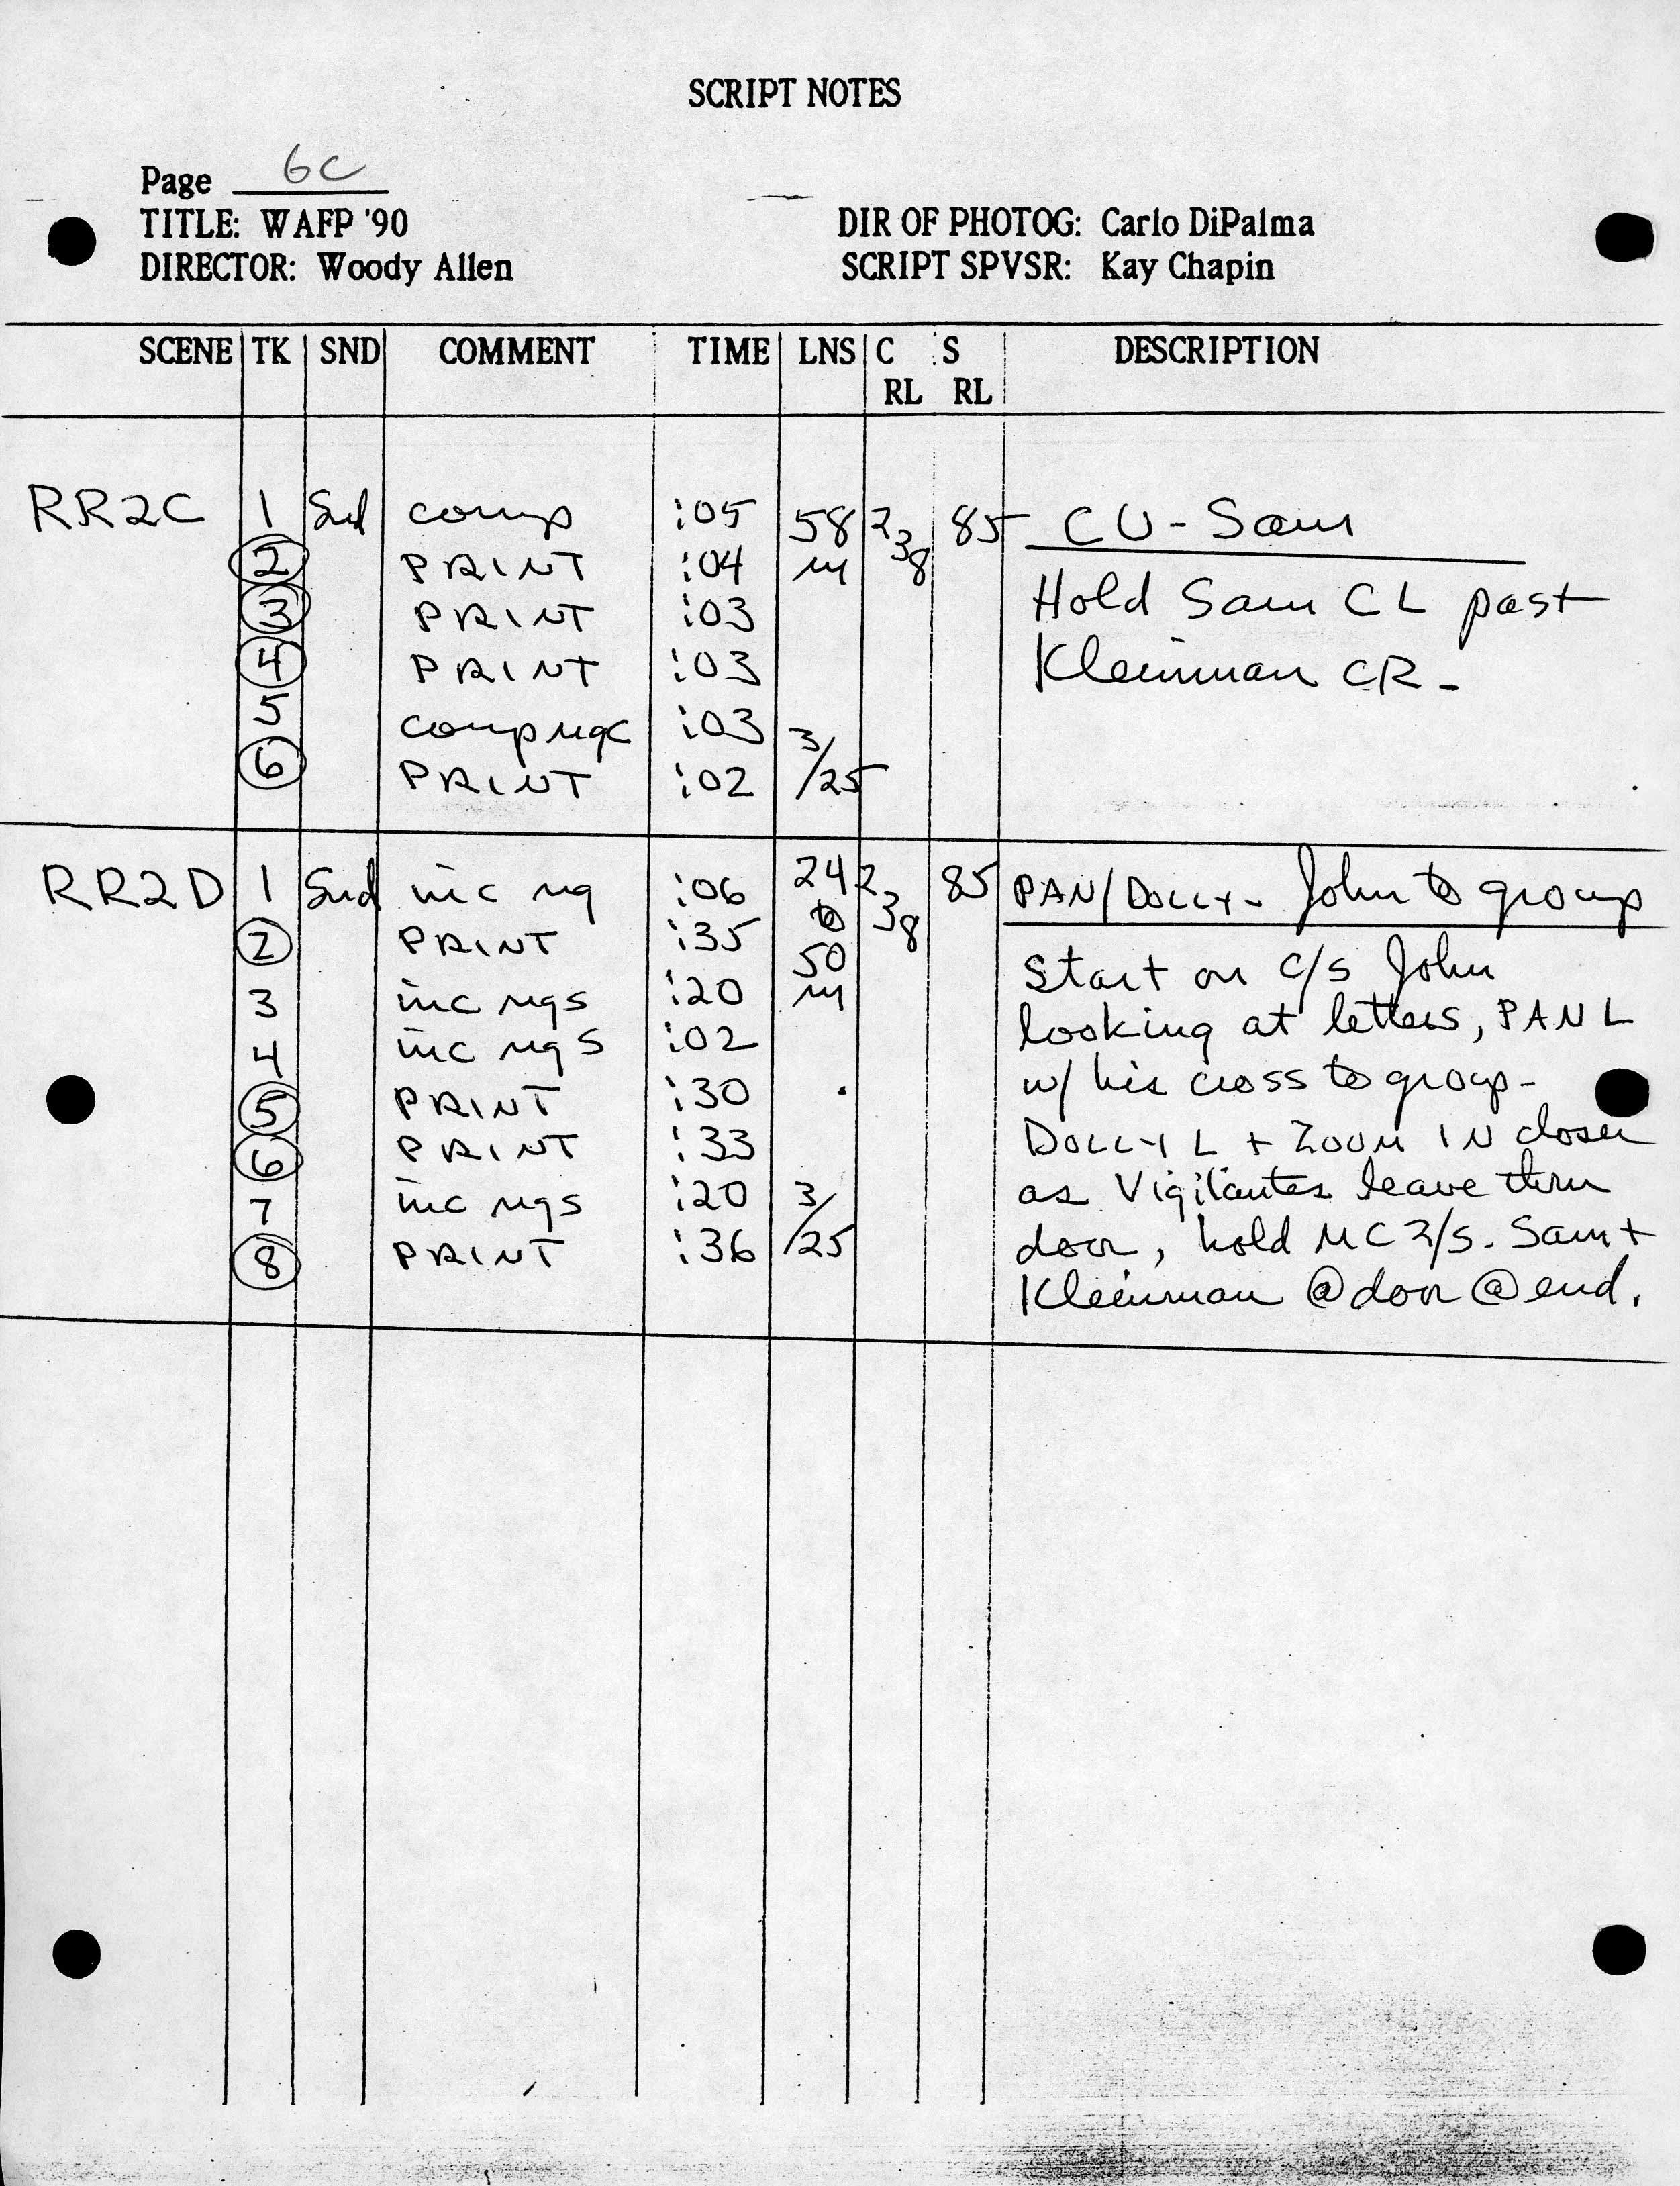 SCRIPT NOTES
Page 6C
TITLE: WAFP '90 DIR OF PHOTOG: Carlo DiPalma
DIRECTOR: Woody Allen SCRIPT SPVSR: Kay Chapin
SCENE TK SND COMMENT TIME LNS C S DESCRIPTION
RL RL
RR2C 1 Snd comp :05 58 238 85 CU - Sam
2 PRINT :04 m
3 PRINT :03 Hold Sam CL past
4 PRINT :03 Kleinman CR -
5 comp ngc :03 3/25
6 PRINT :02
RR2D 1 Snd inc ng :06 24 238 85 PAN/DOLLY - John to group
2 PRINT :35 to 50 Start on c/s John
3 inc ngs :20 m looking at letters, PAN L
4 inc ngs :02 w/ his cross to group -
5 PRINT :30 DOLLY L + ZOOM IN closer
6 PRINT :33 as Vigilantes leave thru
7 inc ngs :20 3/25 door, hold MC 2/S. Sam +
8 PRINT :36 Kleinman @ door @ end.